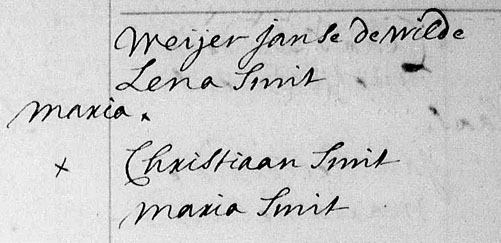 Weijer Janse de Wilde
Lena Smit
Maria.
x Christiaan Smit
Maria Smit